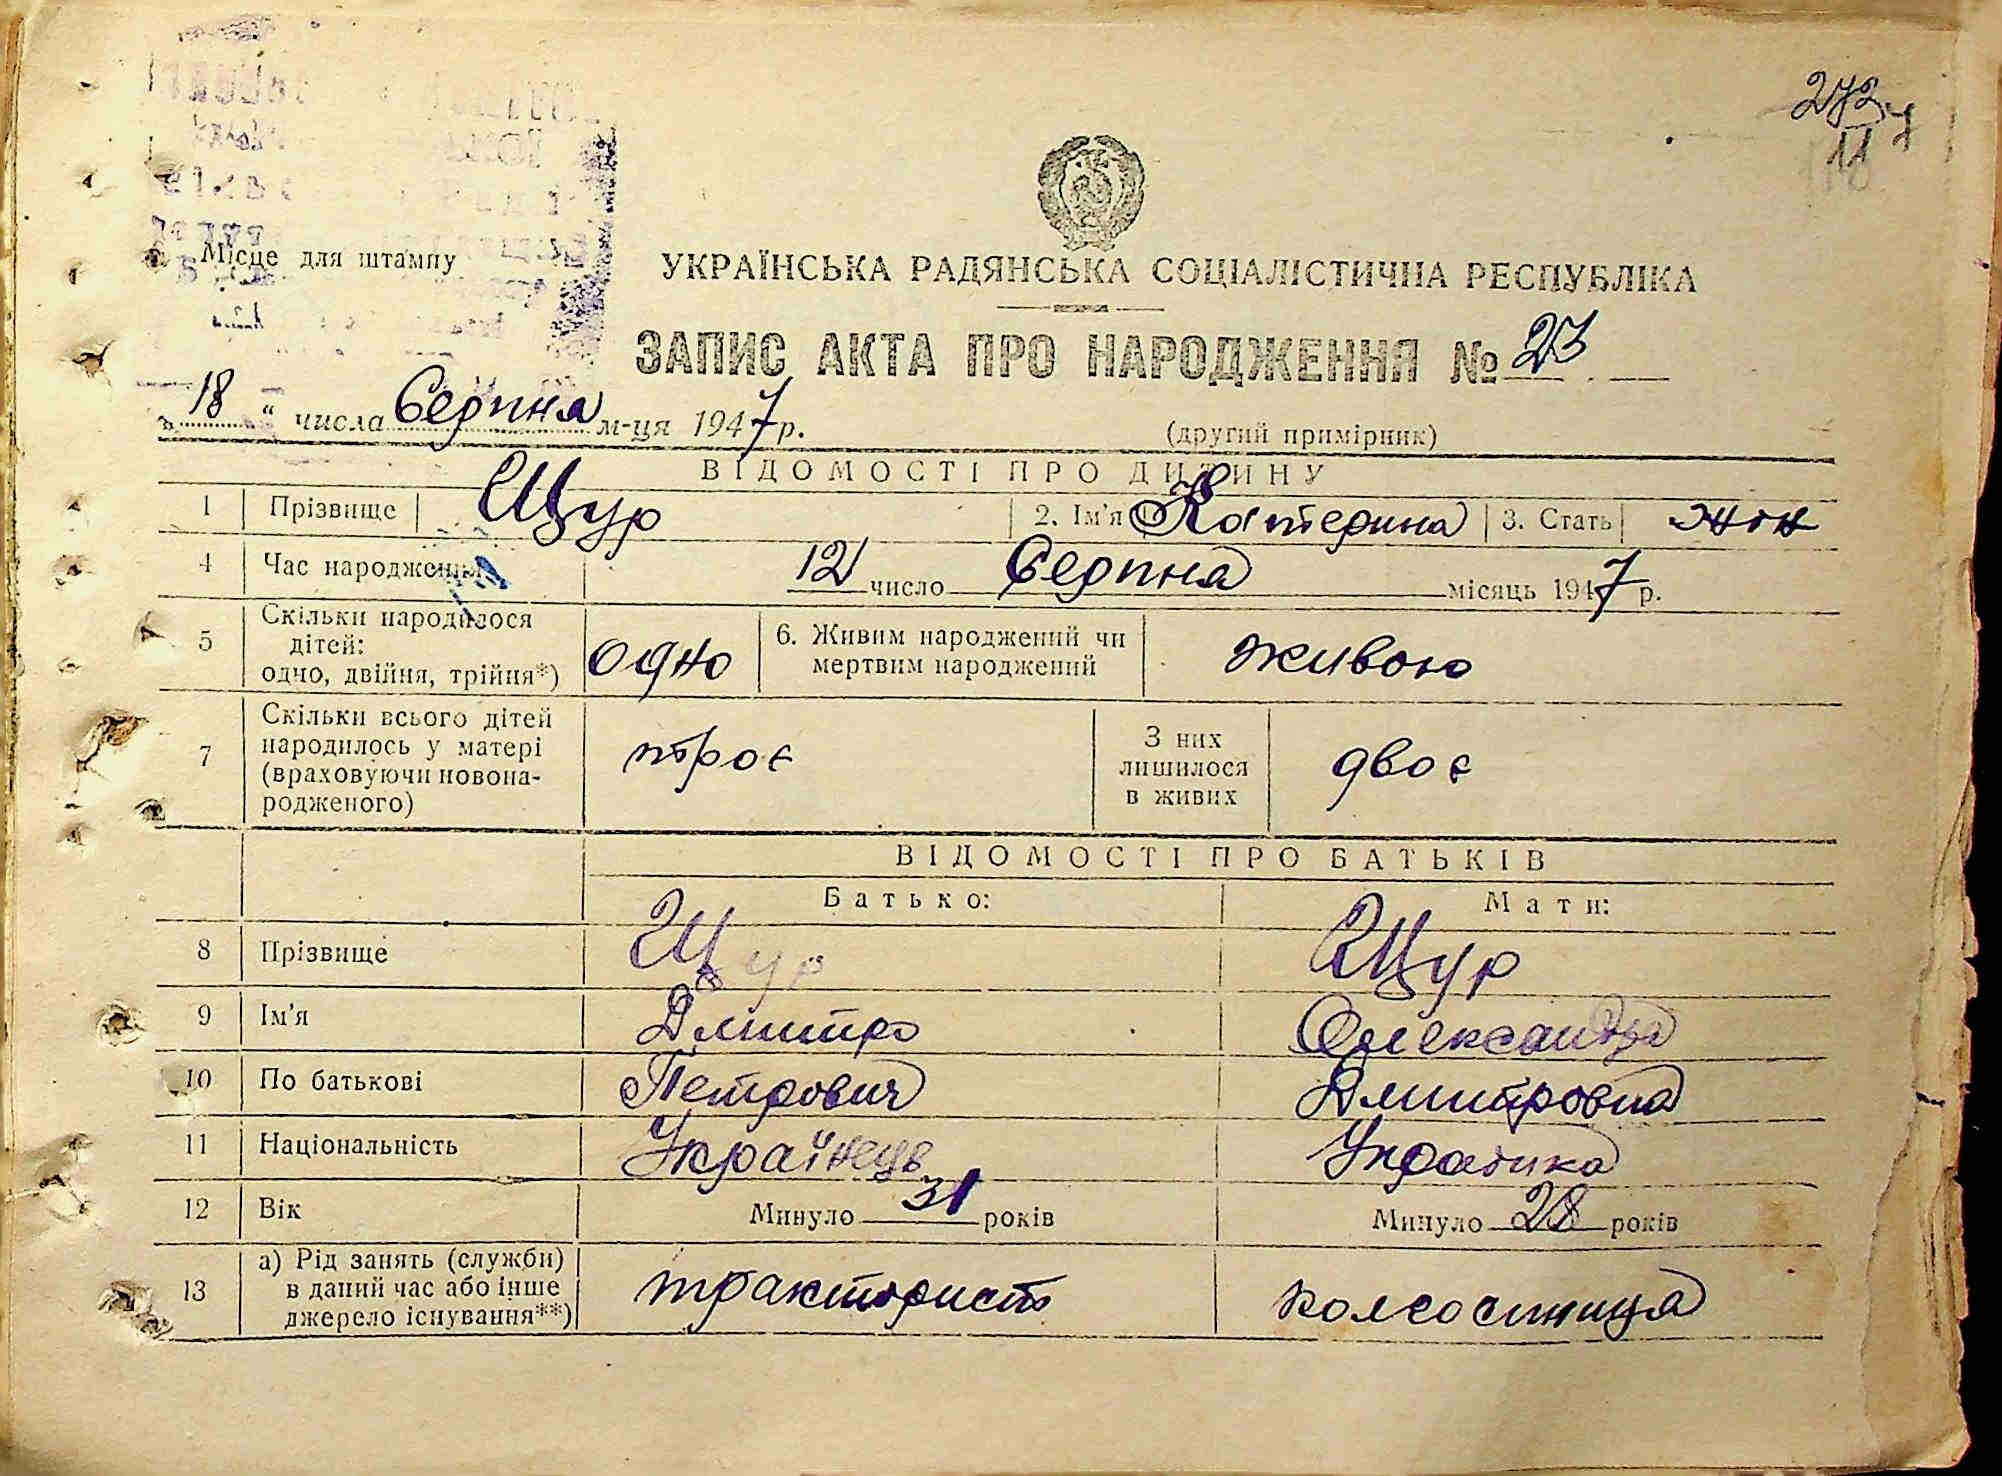 272
118
Місце для штампу
УКРАЇНСЬКА РАДЯНСЬКА СОЦІАЛІСТИЧНА РЕСПУБЛІКА
ЗАПИС АКТА ПРО НАРОДЖЕННЯ № 23
„ 18 “ числа Серпня м-ця 1947 р.
(другий примірник)
ВІДОМОСТІ ПРО ДИТИНУ
1 Прізвище Щур 2. Ім'я Катерина 3. Стать жін
4 Час народження 12 число Серпня місяць 1947 р.
5 Скільки народилося дітей: одно, двійня, трійня*) одно 6. Живим народжений чи мертвим народжений живою
7 Скільки всього дітей народилось у матері (враховуючи новонародженого) троє З них лишилося в живих двоє
ВІДОМОСТІ ПРО БАТЬКІВ
Батько: Мати:
8 Прізвище Щур Щур
9 Ім'я Дмитро Олександра
10 По батькові Петрович Дмитровна
11 Національність Українець Українка
12 Вік Минуло 31 років Минуло 28 років
13 а) Рід занять (служби) в даний час або інше джерело існування**) тракторист колгостниця